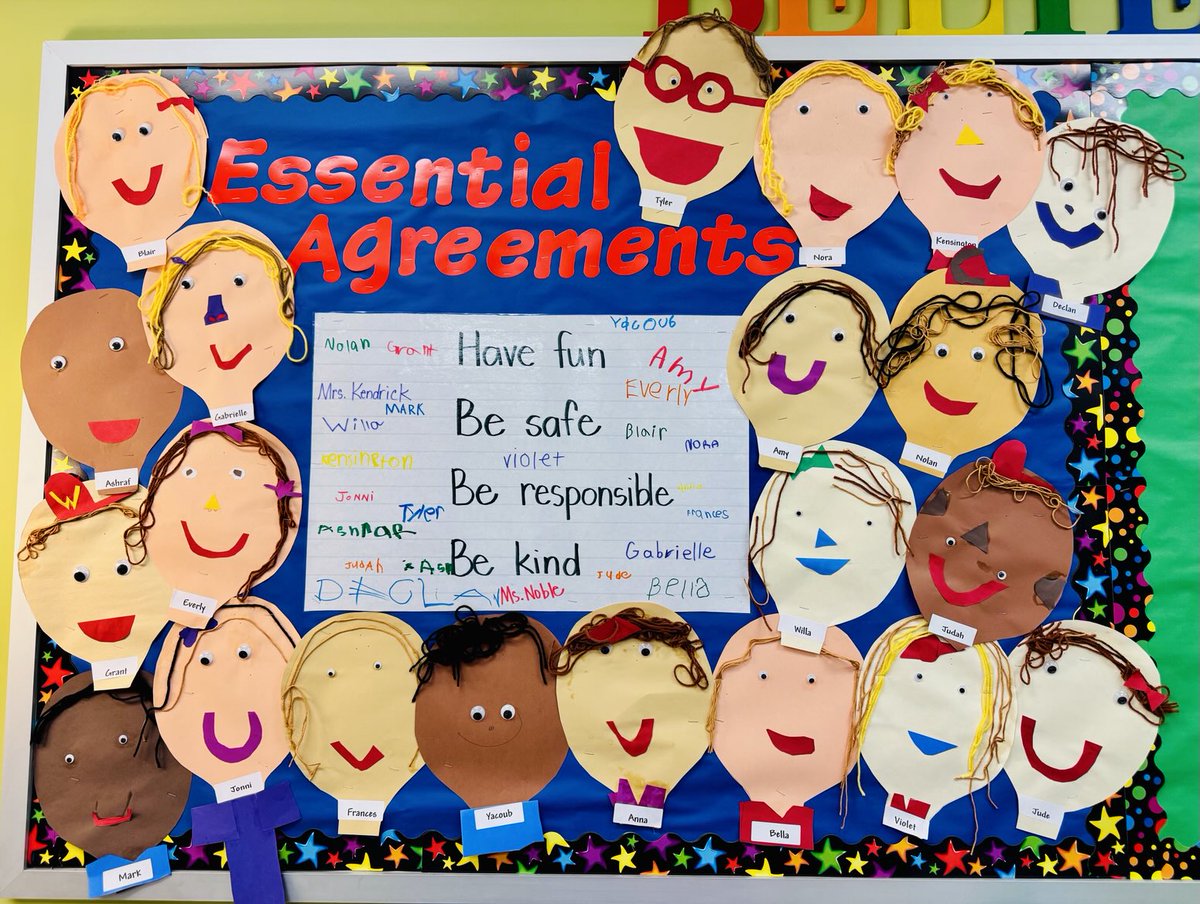 Essential
Agreements
Yacoub
Nolan Grant Have fun Amy
Mrs. Kendrick Everly
MARK
Willa Be safe Blair NORA
Kensington violet
Jonni Be responsible
Tyler Frances
Judah Be kind Jude Gabrielle
Ms. Noble Bella
Tyler
Blair
Nora
Kensington
Declan
Gabrielle
Amy
Nolan
Ashraf
Everly
Willa
Judah
W
Grant
Jonni
Frances
Yacoub
Anna
Bella
Violet
Jude
Mark